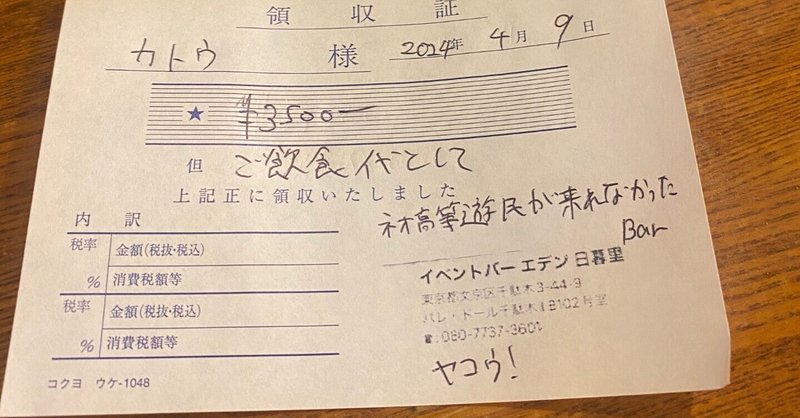 領収証
カトウ 様 2024年 4月 9日
★ ¥3500ー
但 ご飲食代として
上記正に領収いたしました
ネオ高等遊民が来れなかった
Bar
内訳
税率 金額(税抜・税込)
% 消費税額等
税率 金額(税抜・税込)
% 消費税額等
イベントバー エデン 日暮里
東京都文京区千駄木3-44-9
パレ・ドール千駄木 102号室
☎:080-7737-3601
ヤコウ!
コクヨ ウケ-1048